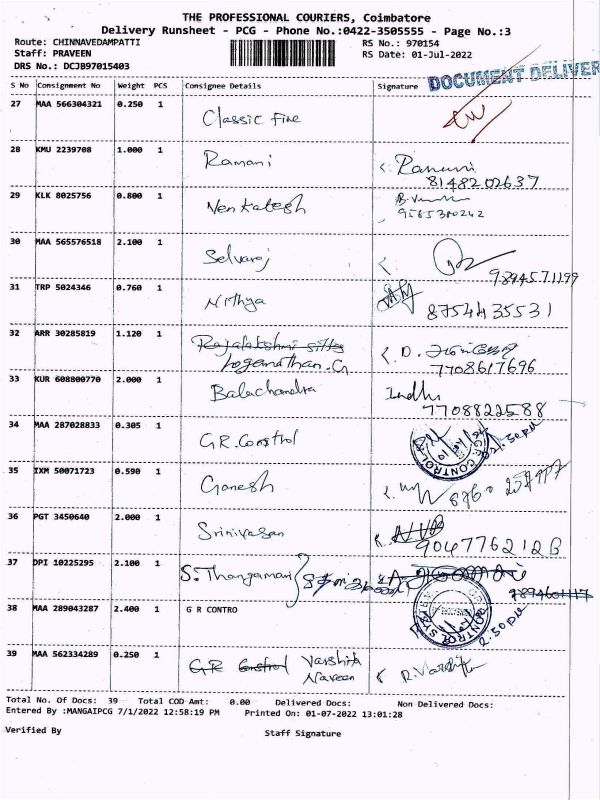 THE PROFESSIONAL COURIERS, Coimbatore
Delivery Runsheet - PCG - Phone No.:0422-3505555 - Page No.:3
Route: CHINNAVEDAMPATTI RS No.: 970154
Staff: PRAVEEN RS Date: 01-Jul-2022
DRS No.: DCJB97015403
DOCUMENT DELIVER
S No Consignment No Weight PCS Consignee Details Signature
27 MAA 566304321 0.250 1 Classic Fire
28 KMU 2239708 1.000 1 Ramani
8148202637
29 KLK 8025756 0.800 1 Venkatesh
9565380242
30 MAA 565576518 2.100 1 Selvaraj
9894571199
31 TRP 5024346 0.760 1 Nithya 8754435531
32 ARR 30285819 1.120 1 Rajalakshmi
Loganathan.G 7708617696
33 KUR 608800770 2.000 1 Balachandra Indhu
7708822588
34 MAA 287028833 0.305 1 G.R. Control
2.50 PM
35 IXM 50071723 0.590 1 Ganesh
36 PGT 3450640 2.000 1 Srinivasan
37 DPI 10225295 2.100 1 S. Thangamani
38 MAA 289043287 2.400 1 G R CONTRO
2.50 PM
39 MAA 562334289 0.250 1 G.R Control Varshita
Naveen
Total No. Of Docs: 39 Total COD Amt: 0.00 Delivered Docs: Non Delivered Docs:
Entered By :MANGAIPCG 7/1/2022 12:58:19 PM Printed On: 01-07-2022 13:01:28
Verified By Staff Signature